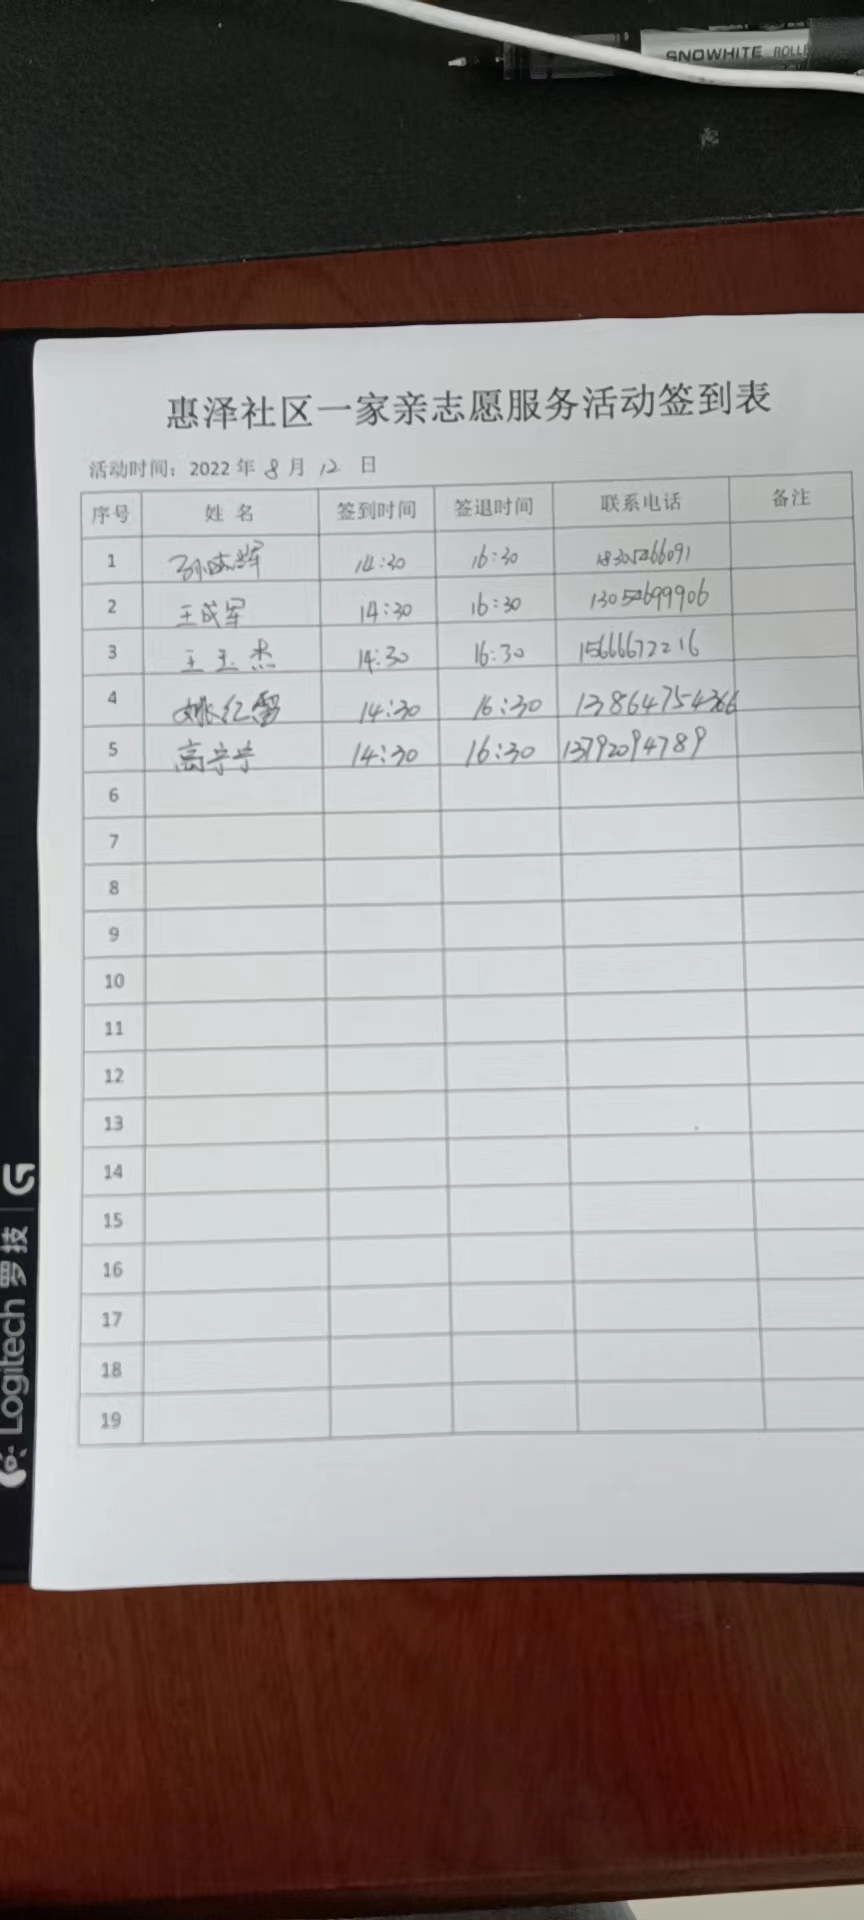 SNOWHITE ROLL
惠泽社区一家亲志愿服务活动签到表
活动时间：2022年 8 月 12 日
序号 姓名 签到时间 签退时间 联系电话 备注
1 14:30 16:30 18305266091
2 王成军 14:30 16:30
3 王玉杰 14:30 16:30 15666672216
4 姚红雷 14:30 16:30 13864754366
5 高宁宁 14:30 16:30 13792094789
6
7
8
9
10
11
12
13
14
15
16
17
18
19
Logitech 罗技 G